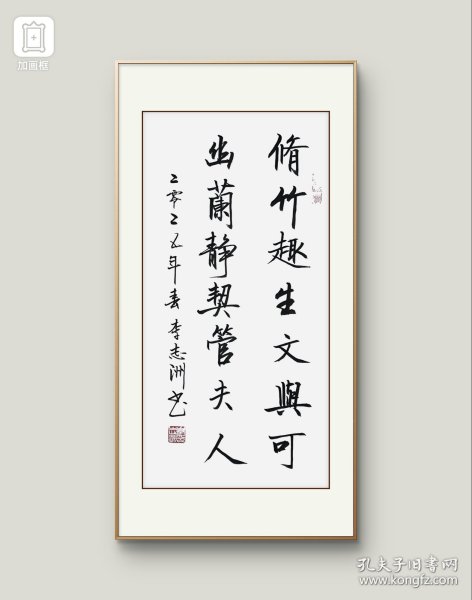 加画框
脩竹趣生文與可
幽蘭静契管夫人
二零二五年春李志洲书
孔夫子旧书网
www.kongfz.com